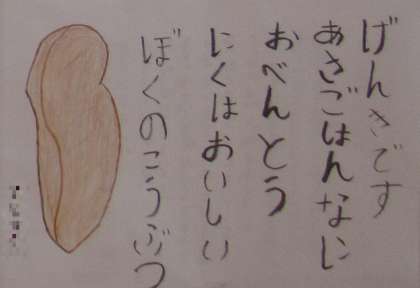 げんきです
あさごはんないに
おべんとう
にくはおいしい
ぼくのこうぶつ